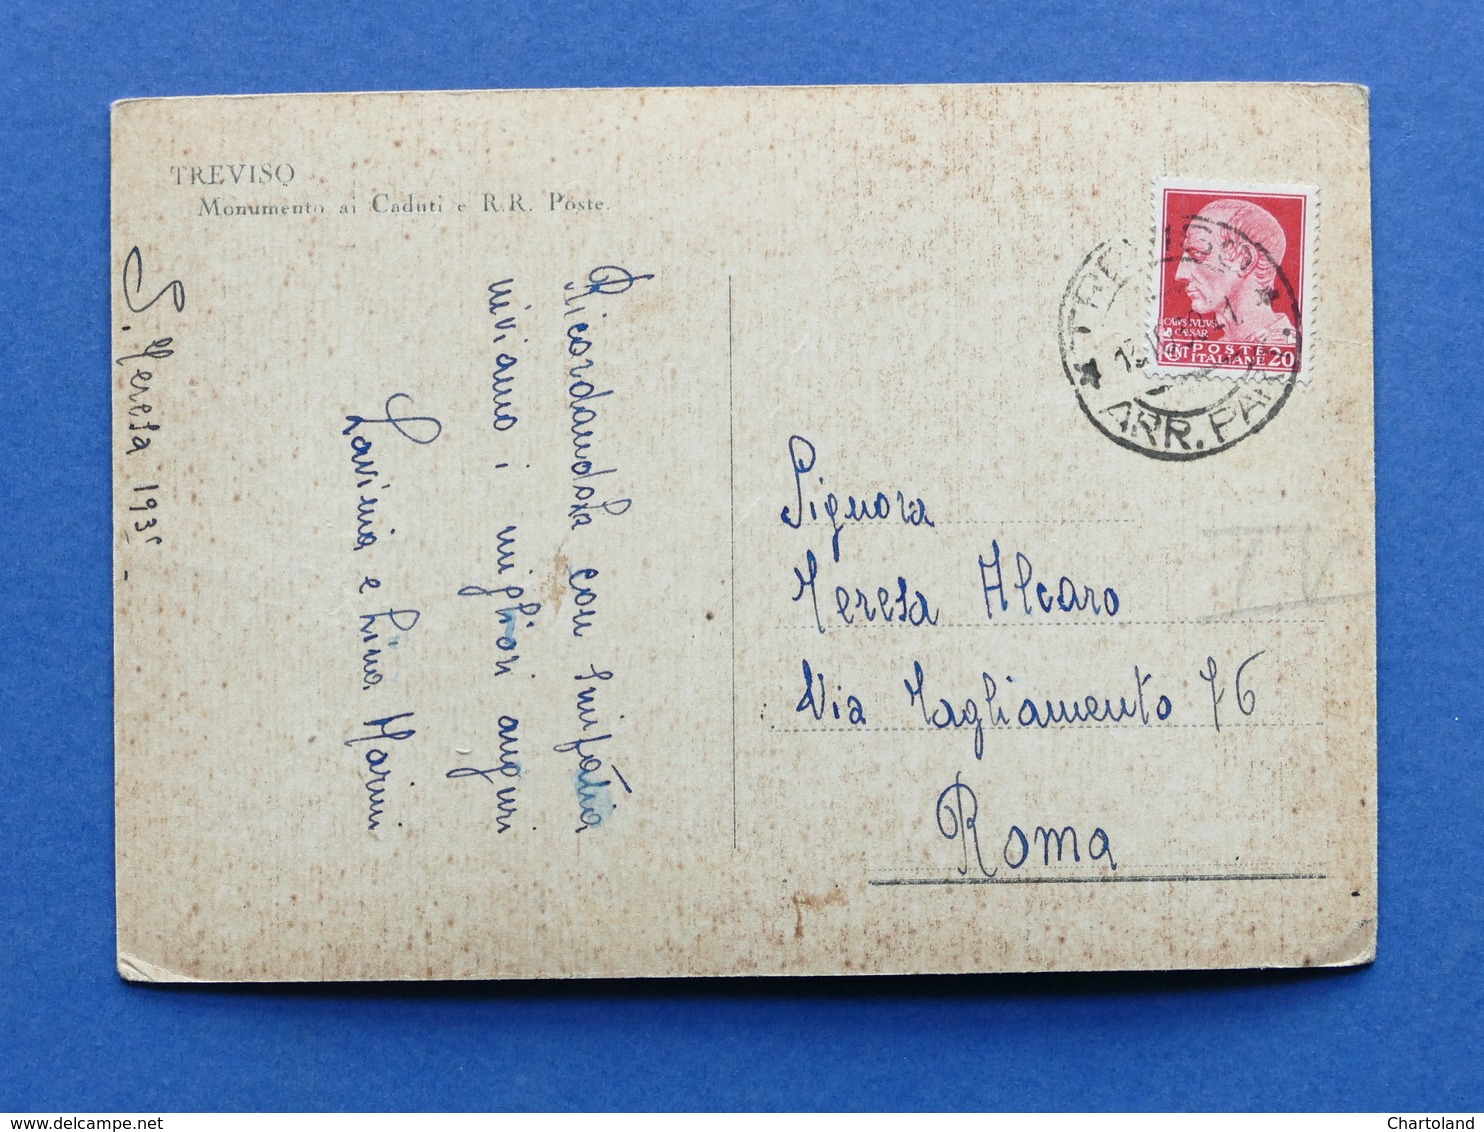 TREVISO
Monumento ai Caduti e R.R. Poste.
S. Teresa 193
Ricordandola con simpatia
inviamo i migliori auguri
Lavinia e Lina Marini
CAIVS IVLIVS
CAESAR
POSTE
ITALIANE
CENT
20
TREVISO
ARR. PAR
Signora
Teresa Alcaro
Via Tagliamento 76
Roma
TV
www.delcampe.net
Chartoland